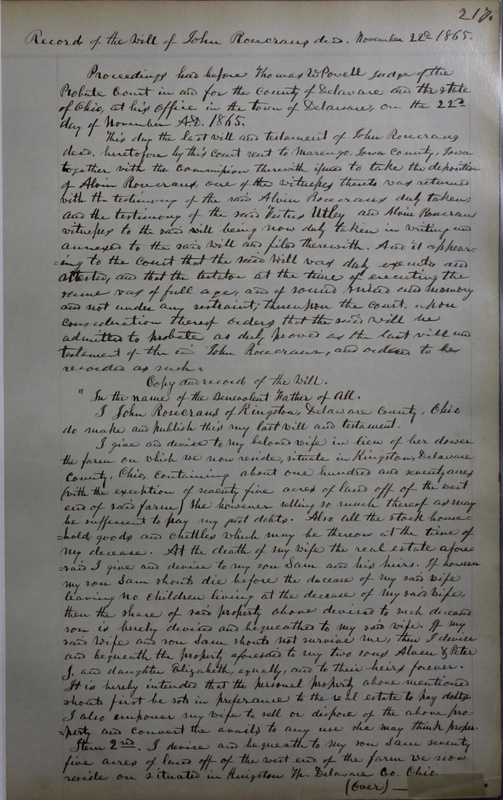 217.
Record of the Will of John Rosecrans decd. November 22d 1865.
Proceedings had before Thomas W. Powell Judge of the
Probate Court in and for the County of Delaware and the State
of Ohio, at his Office in the town of Delaware, on the 22nd
day of November A.D. 1865.
This day the last will and testament of John Rosecrans
decd. heretofore by this Court sent to Marengo, Iowa County, Iowa
together with the Commission therewith issued to take the deposition
of Alvin Rosecrans, one of the witnesses thereto was returned
with the testimony of the said Alvin Rosecrans duly taken,
and the testimony of the said Festus Utley and Alvin Rosecrans
witnesses to the said will being now duly taken in writing and
annexed to the said will and filed therewith. And it appear-
=ing to the Court that the said Will was duly executed and
attested, and that the testator at the time of executing the
same was of full age, and of sound mind and memory
and not under any restraint; thereupon the court, upon
consideration thereof orders that the said will be
admitted to probate as duly proved as the last will and
testament of the said John Rosecrans, and ordered to be
recorded as such.
Copy and record of the Will.
"In the name of the Benevolent Father of All.
I John Rosecrans of Kingston, Delaware County, Ohio
do make and publish this my last will and testament.
I give and devise to my beloved wife in lieu of her dower
the farm on which we now reside, situate in Kingston, Delaware
County, Ohio, containing about one hundred and seventy acres
(with the exception of seventy five acres of land off of the west
end of said farm) She however selling so much thereof as may
be sufficient to pay my just debts. Also all the stock house-
=hold goods and chattles which may be thereon at the time of
my decease. At the death of my wife the real estate afore-
=said I give and devise to my son Sam and his heirs. If however
my son Sam should die before the decease of my said wife
leaving no children living at the decease of my said wife,
then the share of said property above devised to such deceased
son is hereby devised and bequeathed to my said wife. If my
said wife and son Sam should not survive me, then I devise
and bequeath the property aforesaid to my two sons Alvin & Peter
J. and daughter Elizabeth, equally, and to their heirs forever.
It is hereby intended that the personal property above mentioned
should first be sold in preferance to the real estate to pay debts.
I also empower my wife to sell or dispose of the above pro-
=perty and convert the avails to any use she may think proper.
Item 2nd. I devise and bequeath to my son Sam seventy
five acres of land off of the west end of the farm we now
reside on situated in Kingston Tp. Delaware Co. Ohio
(Over)